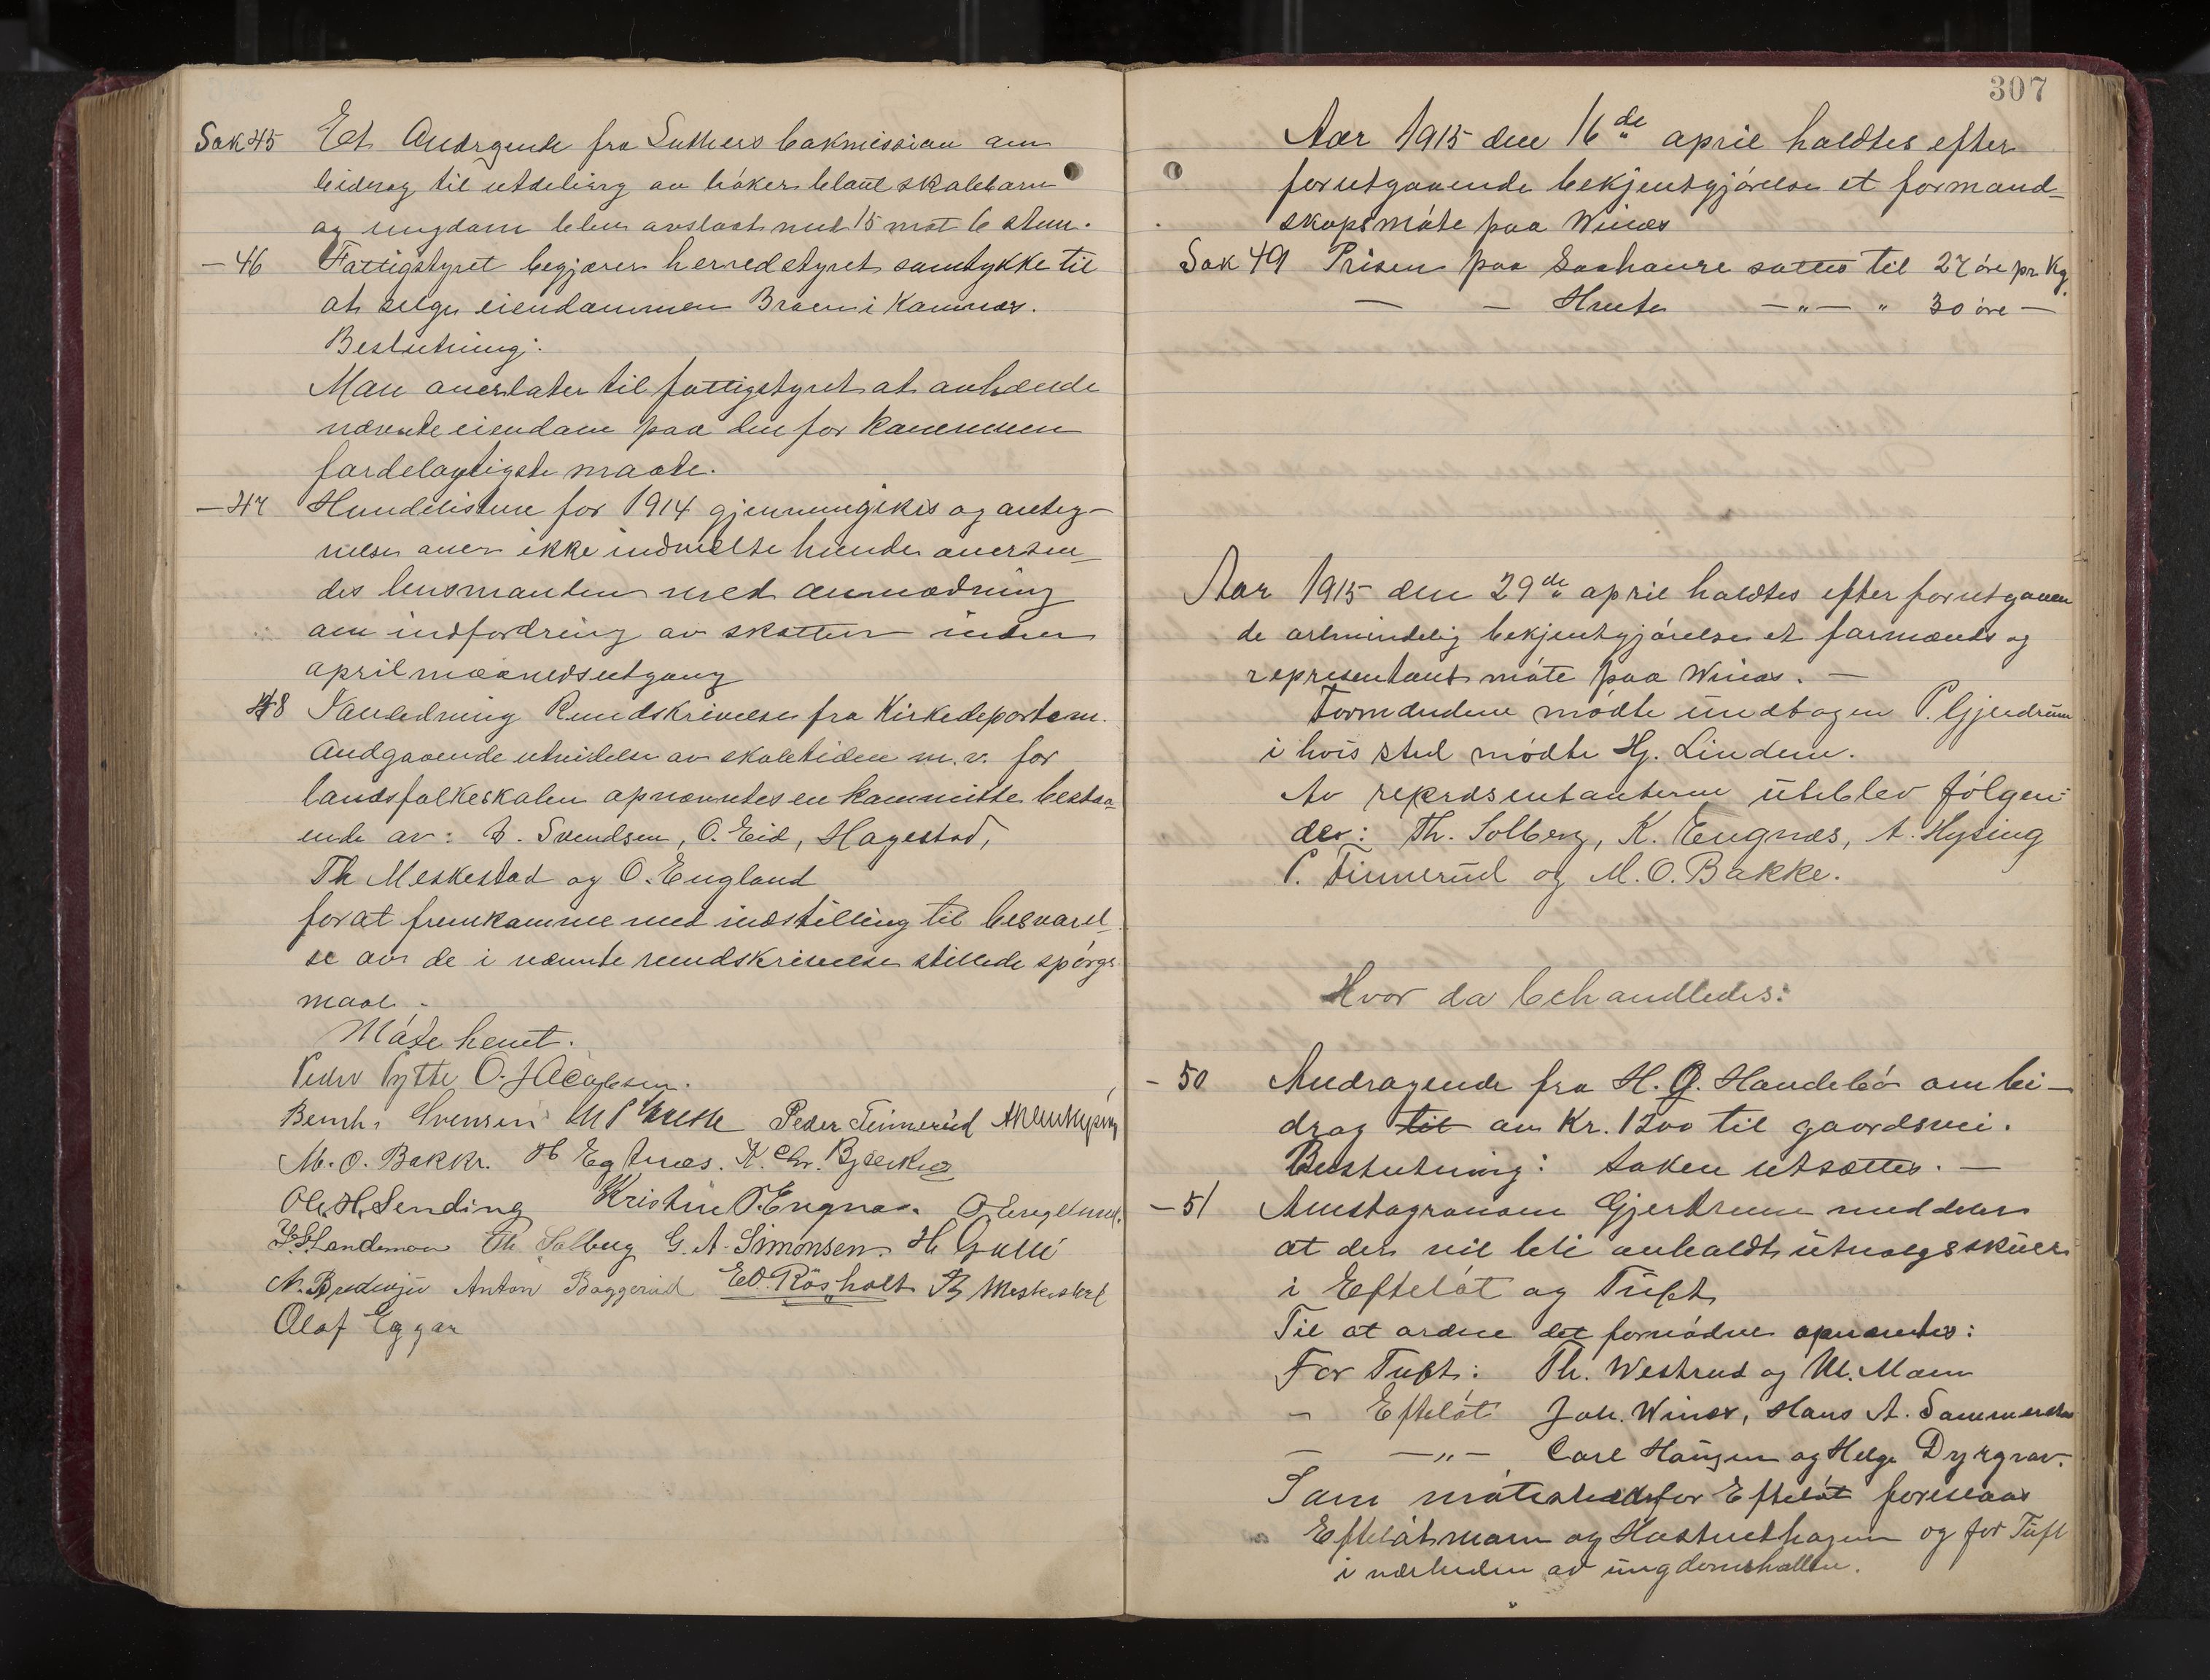 Sak 45 Et Andragende fra Luthers bokmission om
bidrag til utdeling av bøker blant skolebarn
og ungdom blev avslaat med 15 mot 6 stem.
— 46 Fattigstyret begjærer herredstyrets samtykke til
at selge eiendommen Braen i Komnes.
Beslutning:
Man overlater til fattigstyret at avhænde
nævnte eiendom paa den for kommunen
fordelagtigste maate.
— 47 Hundelistene for 1914 gjennemgikes og anteg-
nelser over ikke indmeldte hunde oversen-
des lensmanden med anmodning
om indfordring av skatten inden
april maanedsutgang
48 I anledning Rundskrivelse fra Kirkedepartem.
Andgaaende utvidelse av skoletiden m.v. for
landsfolkeskolen opnævntes en kommitte bestaa-
ende av: B. Svendsen, O. Eid, Hagestad,
Th Meskestad og O. England
for at fremkomme med indstilling til besvarel-
se av de i nævnte rundskrivelse stillede spørgs
maal.
Møte hevet.
Peder Pytte O. Jacobsen.
Bernh. Svensen Peder Tinnerud
M. O. Bakke. H Eg K. Chr. Bjerknes
Ole H. Sending Kristine O. Engnæs. O England.
Landsman Th. Solberg G. A. Simonsen. H Gulli
N. Anton Baggerud EO. Røsholt Th Meskestad
Olaf Eggar
307
Aar 1915 den 16de april holdtes efter
forutgaaende bekjentgjørelse et formand-
skapsmøte paa Winæs
Sak 49 Prisen paa Saahavre sattes til 27 øre pr Kg.
— — Hvete — „ — „ 30 øre —
Aar 1915 den 29de april holdtes efter forutgaaen
de almindelig bekjentgjørelse et formænds og
representant møte paa Winæs. —
Formændene mødte undtagen P. Gjendrum
i hvis sted mødte Hj. Lindem.
Av repræsentanterne uteblev følgen-
der: Th. Solberg, K. Engnæs, A. Hysing
P. Tinnerud og M. O. Bakke.
Hvor da behandledes:
- 50 Andragende fra H. O. Handebø om bi-
drag til av Kr. 1200 til gaardsvei.
Beslutning: Saken utsættes. —
— 51 Amstagronom Gjertrum meddeler
at der vil bli avholdt utvalgsskuer
i Efteløt og Tuft
Til at ordne det fornødne opnævntes:
For Tuft: Th. Westrud og M. Moen
— Efteløt Joh. Winæs, Hans A. Sommerstad
— — „ — Carl Hansen og Helge Dyrgrav.
Som møtested for Efteløt foreslaaes
Efteløtmoen og Hostvethagen og for Tuft
i nærheden av ungdomshallen.